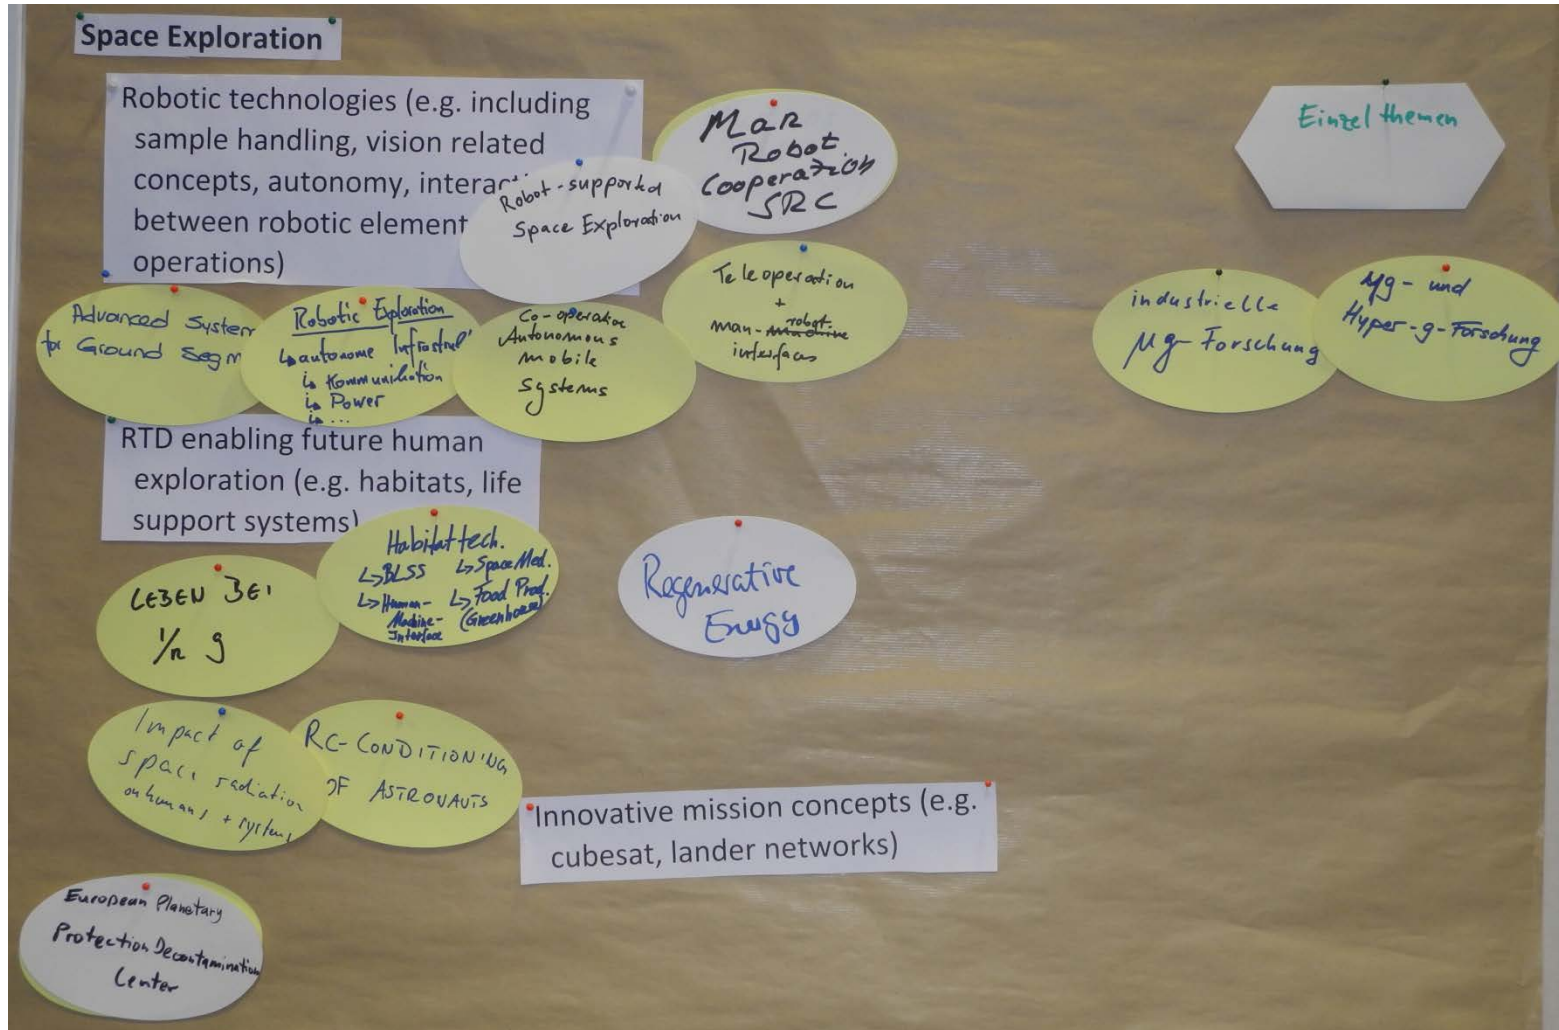 Space Exploration
Robotic technologies (e.g. including
sample handling, vision related
concepts, autonomy, interac
between robotic element
operations)
Robot-supported
Space Exploration
Man
Robot
Cooperation
SRC
Einzelthemen
Advanced System
for Ground Segm
Robotic Exploration
↳ autonome Infrastrul'
↳ Kommunikation
↳ Power
↳ ...
Co-operation
Autonomous
mobile
Systems
Teleoperation
+
robot
man-machine
interfaces
industrielle
µg-Forschung
µg- und
Hyper-g-Forschung
RTD enabling future human
exploration (e.g. habitats, life
support systems)
LEBEN BEI
1/n g
Habitattech.
↳ BLSS ↳ Space Med.
↳ Human- ↳ Food Prod.
Machine- (Greenhouse)
Interface
Regenerative
Energy
Impact of
space radiation
on humans + systems
RC-CONDITIONING
OF ASTRONAUTS
Innovative mission concepts (e.g.
cubesat, lander networks)
European Planetary
Protection Decontamination
Center